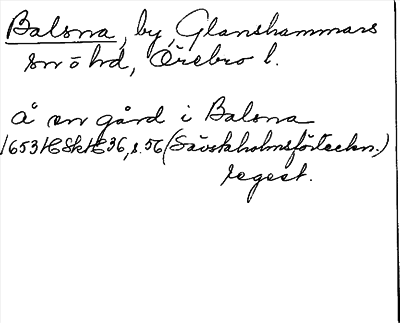 Balsna, by, Glanshammars
sn o hd, Örebro l.
å en gård i Balsna
1653 HSkH 36, s. 56 (Sävstaholmsförteckn.)
regest.